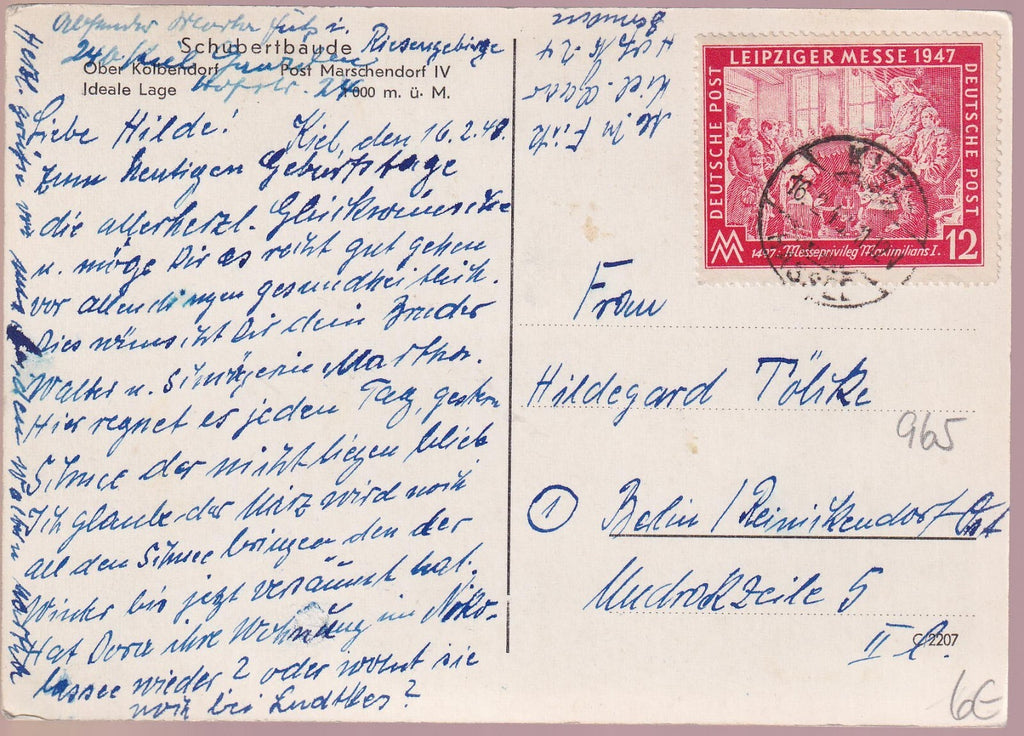 Absender Martha Fütz i.
24a/Kiel-Gaarden
Schubertbaude Riesengebirge
Ober Kolbendorf Post Marschendorf IV
Ideale Lage 1000 m. ü. M.
Liebe Hilde! Kiel, den 16.2.48.
Zum heutigen Geburtstage
die allerherzl. Glückwünsche
u. möge Dir es recht gut gehen
vor allen dingen gesundheitlich.
Dies wünscht Dir dein Bruder
Walter u. Schwägerin Martha.
Hier regnet es jeden Tag, gestern
Schnee der nicht liegen blieb
Ich glaube der März wird noch
all den Schnee bringen den der
Winter bis jetzt versäumt hat.
Hat Dora ihre Wohnung in Niko-
lassee wieder? oder wohnt sie
noch bei Ludtkes?
Herzl. Grüßen von uns beiden Walter Martha
LEIPZIGER MESSE 1947
DEUTSCHE POST
DEUTSCHE POST
1497 · Messeprivileg Maximilians I. 12
KIEL
Frau
Hildegard Tölke
965
1 Berlin / Reinikendorf Ost
Mudrakzeile 5
II l.
C/2207
6€